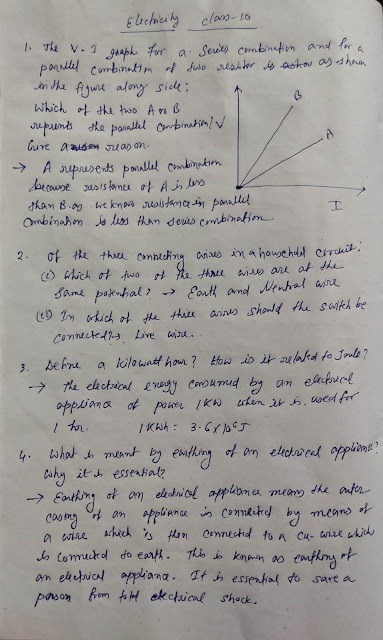 Electricity class-10
1. The V-I graph for a series combination and for a
parallel combination of two resistor is as shown
in the figure along side:
Which of the two A or B
reprents the parallel combination? V
Give a reason.
B
A
I
→ A represents parallel combination
because resistance of A is less
than B. as we know resistance in parallel
combination is less than series combination.
2. Of the three connecting wires in a household circuit:
(i) Which of two of the three wires are at the
same potential? → Earth and Neutral wire
(ii) In which of the three wires should the switch be
connected? → Live wire.
3. Define a kilowatt hour? How is it related to Joule?
→ The electrical energy consumed by an electrical
appliance of power 1 KW when it is used for
1 hr. 1 KWh = 3.6 × 10⁶ J
4. What is meant by earthing of an electrical appliance?
Why it is essential?
→ Earthing of an electrical appliance means the outer
casing of an appliance is connected by means of
a wire which is then connected to a cu-wire which
is connected to earth. This is known as earthing of
an electrical appliance. It is essential to save a
person from electrical shock.